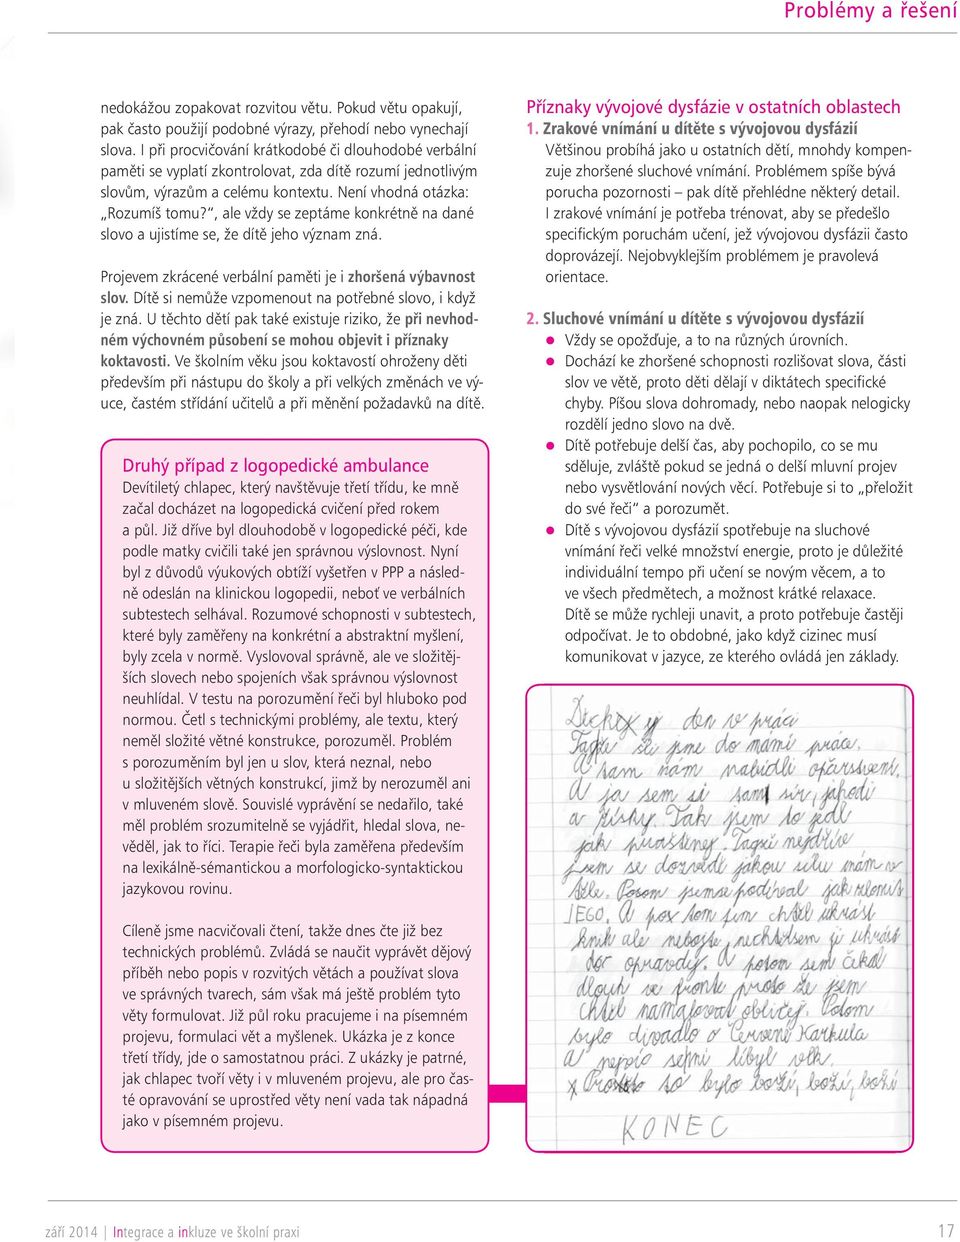 Problémy a řešení
nedokážou zopakovat rozvitou větu. Pokud větu opakují,
pak často použijí podobné výrazy, přehodí nebo vynechají
slova. I při procvičování krátkodobé či dlouhodobé verbální
paměti se vyplatí zkontrolovat, zda dítě rozumí jednotlivým
slovům, výrazům a celému kontextu. Není vhodná otázka:
„Rozumíš tomu?“, ale vždy se zeptáme konkrétně na dané
slovo a ujistíme se, že dítě jeho význam zná.
Projevem zkrácené verbální paměti je i zhoršená výbavnost
slov. Dítě si nemůže vzpomenout na potřebné slovo, i když
je zná. U těchto dětí pak také existuje riziko, že při nevhod-
ném výchovném působení se mohou objevit i příznaky
koktavosti. Ve školním věku jsou koktavostí ohroženy děti
především při nástupu do školy a při velkých změnách ve vý-
uce, častém střídání učitelů a při měnění požadavků na dítě.
Druhý případ z logopedické ambulance
Devítiletý chlapec, který navštěvuje třetí třídu, ke mně
začal docházet na logopedická cvičení před rokem
a půl. Již dříve byl dlouhodobě v logopedické péči, kde
podle matky cvičili také jen správnou výslovnost. Nyní
byl z důvodů výukových obtíží vyšetřen v PPP a násled-
ně odeslán na klinickou logopedii, neboť ve verbálních
subtestech selhával. Rozumové schopnosti v subtestech,
které byly zaměřeny na konkrétní a abstraktní myšlení,
byly zcela v normě. Vyslovoval správně, ale ve složitěj-
ších slovech nebo spojeních však správnou výslovnost
neuhlídal. V testu na porozumění řeči byl hluboko pod
normou. Četl s technickými problémy, ale textu, který
neměl složité větné konstrukce, porozuměl. Problém
s porozuměním byl jen u slov, která neznal, nebo
u složitějších větných konstrukcí, jimž by nerozuměl ani
v mluveném slově. Souvislé vyprávění se nedařilo, také
měl problém srozumitelně se vyjádřit, hledal slova, ne-
věděl, jak to říci. Terapie řeči byla zaměřena především
na lexikálně-sémantickou a morfologicko-syntaktickou
jazykovou rovinu.
Cíleně jsme nacvičovali čtení, takže dnes čte již bez
technických problémů. Zvládá se naučit vyprávět dějový
příběh nebo popis v rozvitých větách a používat slova
ve správných tvarech, sám však má ještě problém tyto
věty formulovat. Již půl roku pracujeme i na písemném
projevu, formulaci vět a myšlenek. Ukázka je z konce
třetí třídy, jde o samostatnou práci. Z ukázky je patrné,
jak chlapec tvoří věty i v mluveném projevu, ale pro čas-
té opravování se uprostřed věty není vada tak nápadná
jako v písemném projevu.
Příznaky vývojové dysfázie v ostatních oblastech
1. Zrakové vnímání u dítěte s vývojovou dysfázií
Většinou probíhá jako u ostatních dětí, mnohdy kompen-
zuje zhoršené sluchové vnímání. Problémem spíše bývá
porucha pozornosti – pak dítě přehlédne některý detail.
I zrakové vnímání je potřeba trénovat, aby se předešlo
specifickým poruchám učení, jež vývojovou dysfázii často
doprovázejí. Nejobvyklejším problémem je pravolevá
orientace.
2. Sluchové vnímání u dítěte s vývojovou dysfázií
● Vždy se opožďuje, a to na různých úrovních.
● Dochází ke zhoršené schopnosti rozlišovat slova, části
slov ve větě, proto děti dělají v diktátech specifické
chyby. Píšou slova dohromady, nebo naopak nelogicky
rozdělí jedno slovo na dvě.
● Dítě potřebuje delší čas, aby pochopilo, co se mu
sděluje, zvláště pokud se jedná o delší mluvní projev
nebo vysvětlování nových věcí. Potřebuje si to „přeložit
do své řeči“ a porozumět.
● Dítě s vývojovou dysfázií spotřebuje na sluchové
vnímání řeči velké množství energie, proto je důležité
individuální tempo při učení se novým věcem, a to
ve všech předmětech, a možnost krátké relaxace.
Dítě se může rychleji unavit, a proto potřebuje častěji
odpočívat. Je to obdobné, jako když cizinec musí
komunikovat v jazyce, ze kterého ovládá jen základy.
den v práci
se jme do mámí práce.
A sam nám nabídli opčarstvení.
A ja sem si sam sír, jahodi
a říšky. Tak jsem to jedl
jak praštěnej. Tagže nejdříve
jsem se dozvědě jakou silu mám v
těle. Potom jsemse podíval jak
LEGO. A pox tom sem chtěl ukrást
knik ale nebojte, nechtělsem je ukrást
dor opravdy. A potom sem čekal
dlouh ve fronte proto že jsem
chtěl namalovat obličej. Potom
bylo divadlo o Červené Karkula
A nejvío sepni líbyl vlk.
x Protože so bylo boží, boží, boží
KONEC
září 2014 | Integrace a inkluze ve školní praxi 17